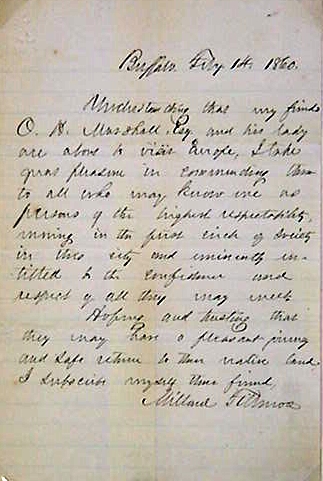 Buffalo. Feby 14. 1860.
Understanding that my friend
O. H. Marshall Esq. and his lady
are about to visit Europe, I take
great pleasure in commending them
to all who may know me as
persons of the highest respectability,
moving in the first circle of society
in this city and eminently en-
titled to the confidence and
respect of all they may meet
Hoping and trusting that
they may have a pleasant journey
and safe return to their native land
I subscribe myself their friend
Millard Fillmore